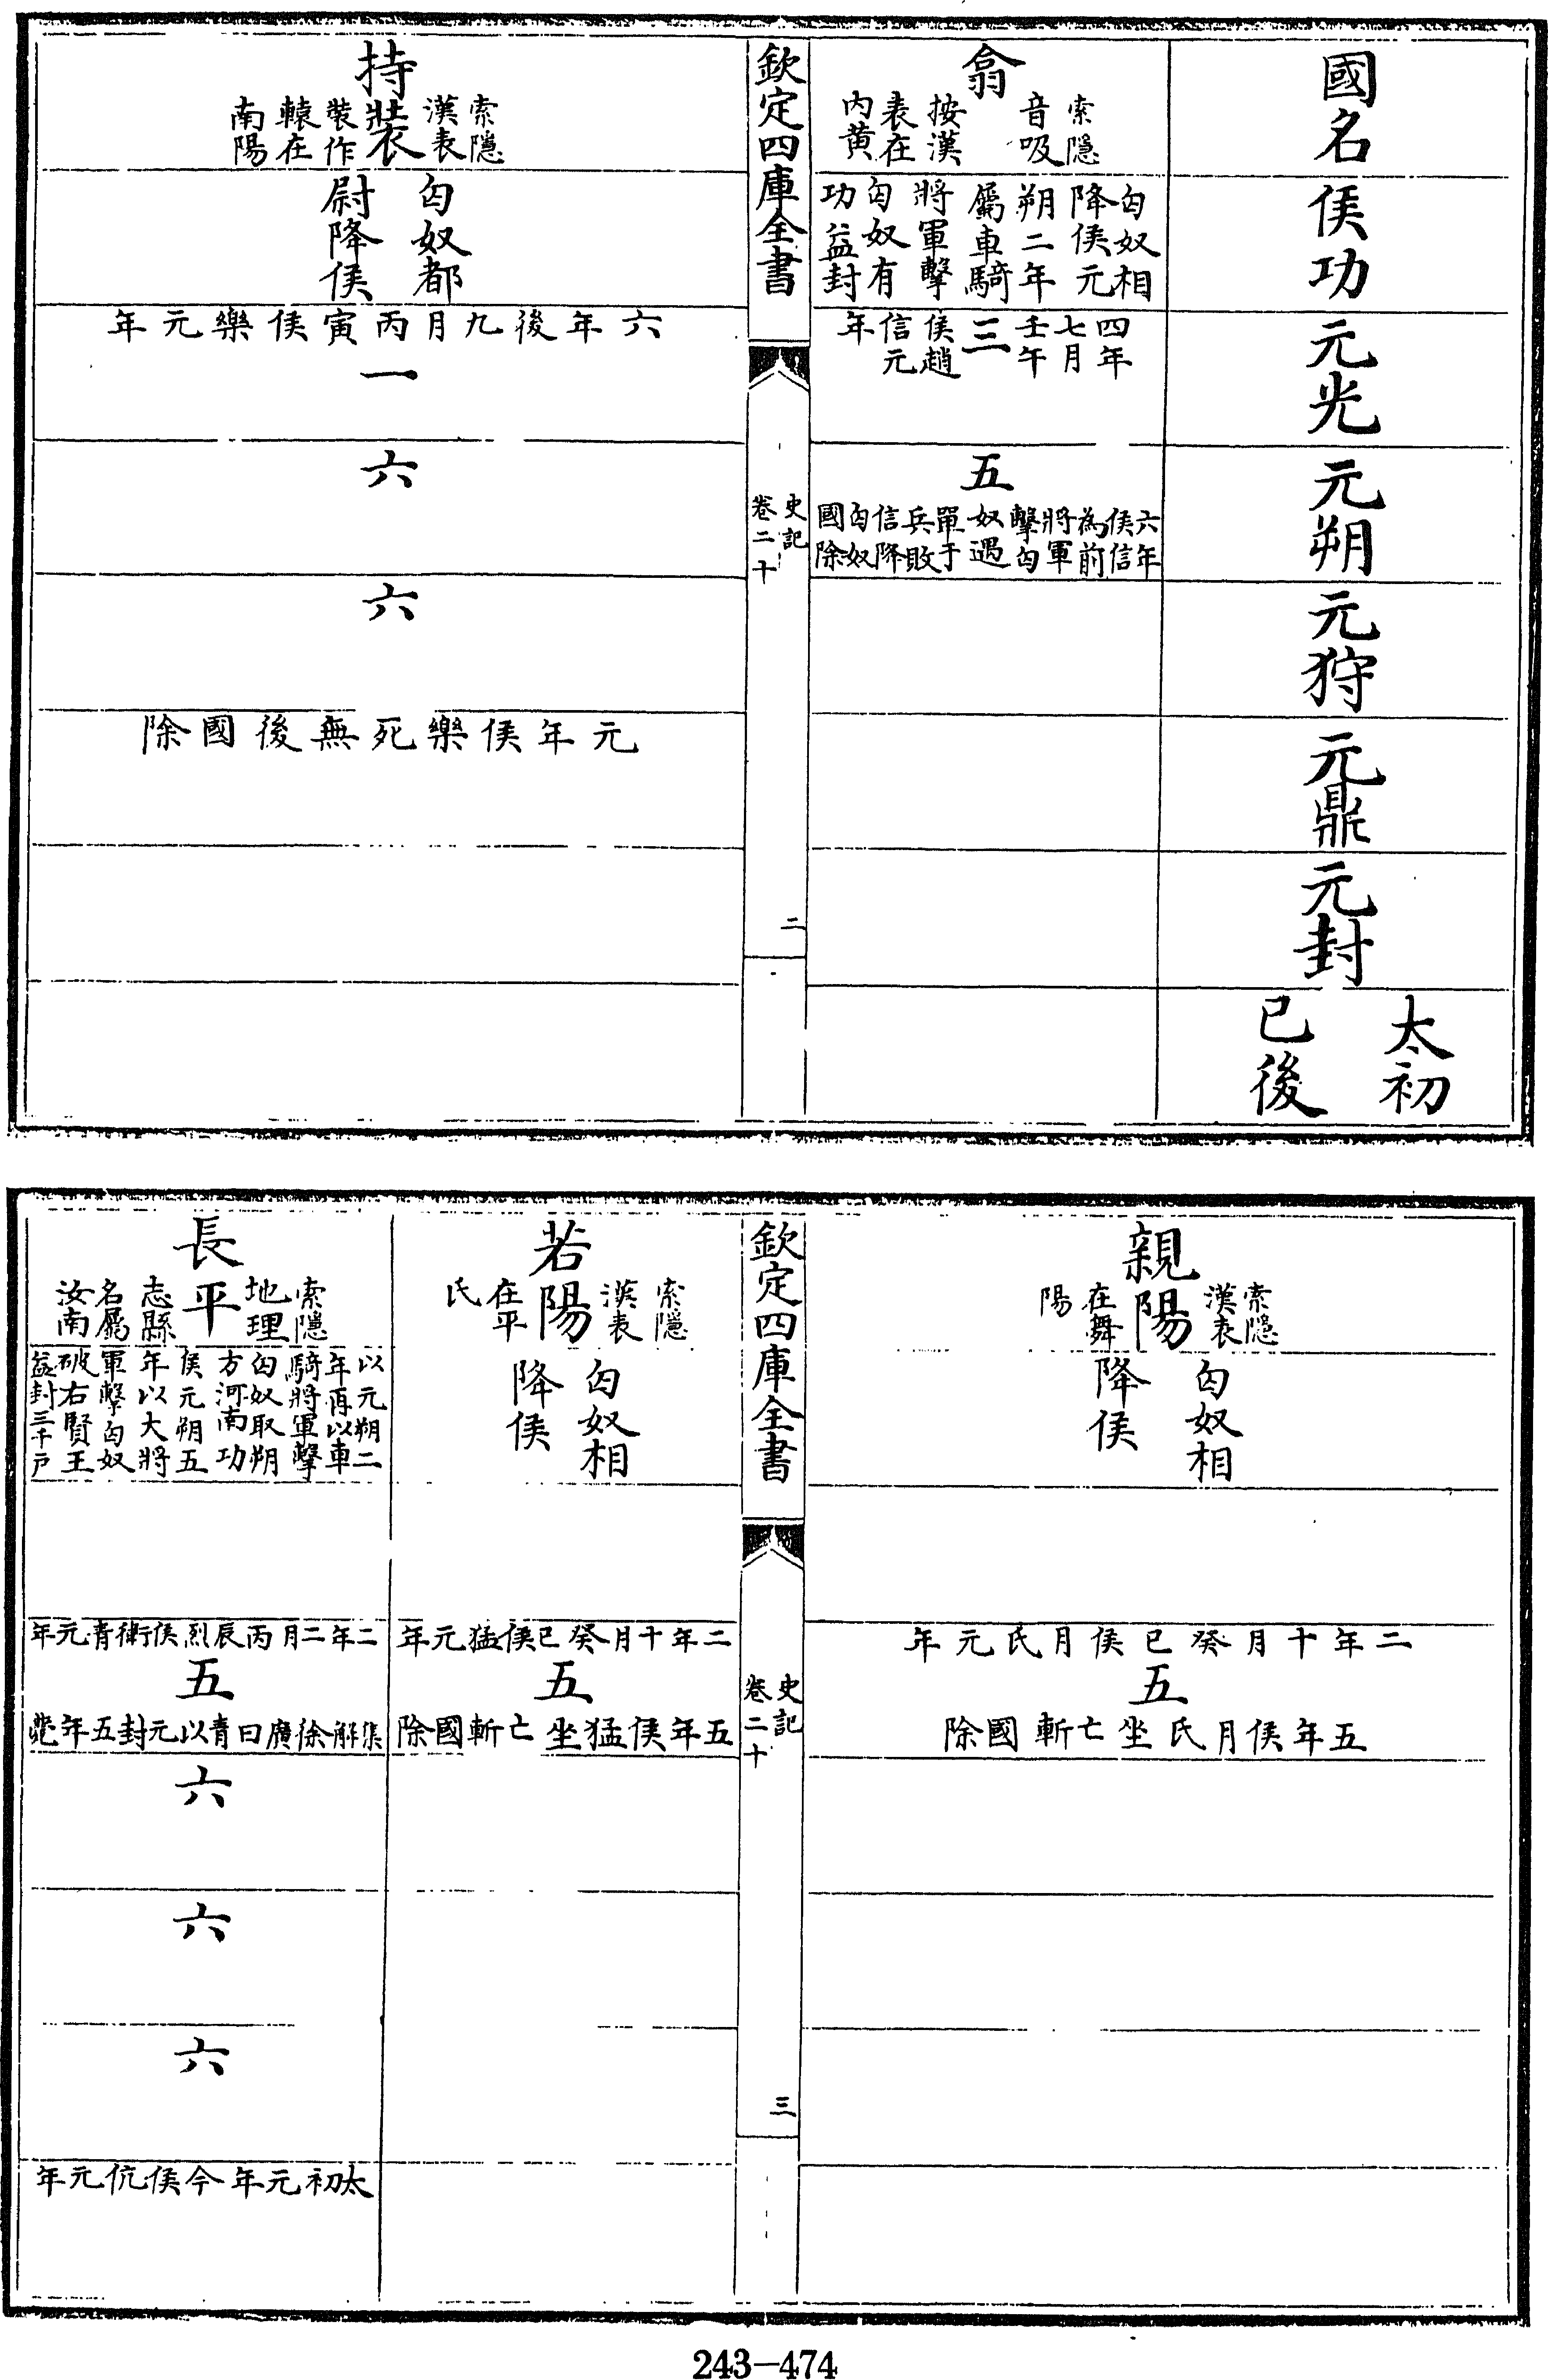 國名
侯功
元光
元朔
元狩
元鼎
元封
太初
已後
翕
索隱
音吸
按漢
表在
內黃
匈奴相
降侯元
朔二年
屬車騎
將軍擊
匈奴有
功益封
四年
七月
壬午
三
侯趙
信元
年
五
六年
侯信
為前
將軍
擊匈
奴遇
單于
兵敗
信降
匈奴
國除
欽定四庫全書
史記
卷二十
二
持裝
索隱
漢表
裝作
轅在
南陽
匈奴都
尉降侯
六年後九月丙寅侯樂元年
一
六
六
元年侯樂死無後國除
親陽
索隱
漢表
在舞
陽
匈奴相
降侯
二年十月癸巳侯月氏元年
五
五年侯月氏坐亡斬國除
欽定四庫全書
史記
卷二十
三
若陽
索隱
漢表
在平
氏
匈奴相
降侯
二年十月癸巳侯猛元年
五
五年侯猛坐亡斬國除
長平
索隱
地理
志縣
名屬
汝南
以元朔二
年再以車
騎將軍擊
匈奴取朔
方河南功
侯元朔五
年以大將
軍擊匈奴
破右賢王
益封三千戶
二年二月丙辰烈侯衛青元年
五
集解徐廣曰青以元封五年薨
六
六
六
太初元年今侯伉元年
243-474